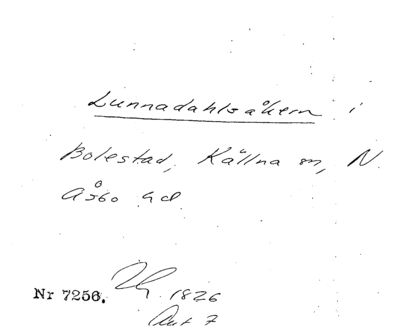 Lunnadahlsåkern i
Bolestad, Källna sn, N.
Åsbo hd
Nr 7256. 1826
Akt 7